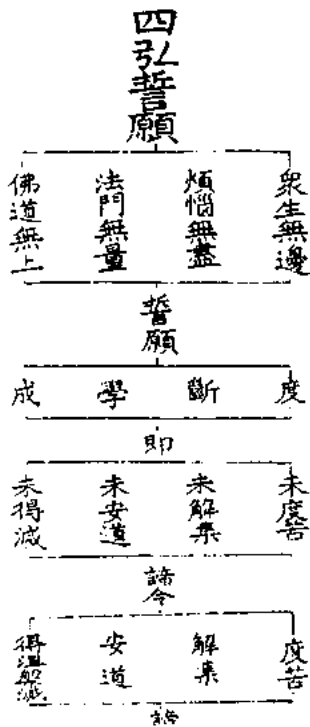 四弘誓願
衆生無邊
煩惱無盡
法門無量
佛道無上
誓願
度
斷
學
成
即
未度苦
未解集
未安道
未得滅
諦令
度苦
解集
安道
得涅槃滅